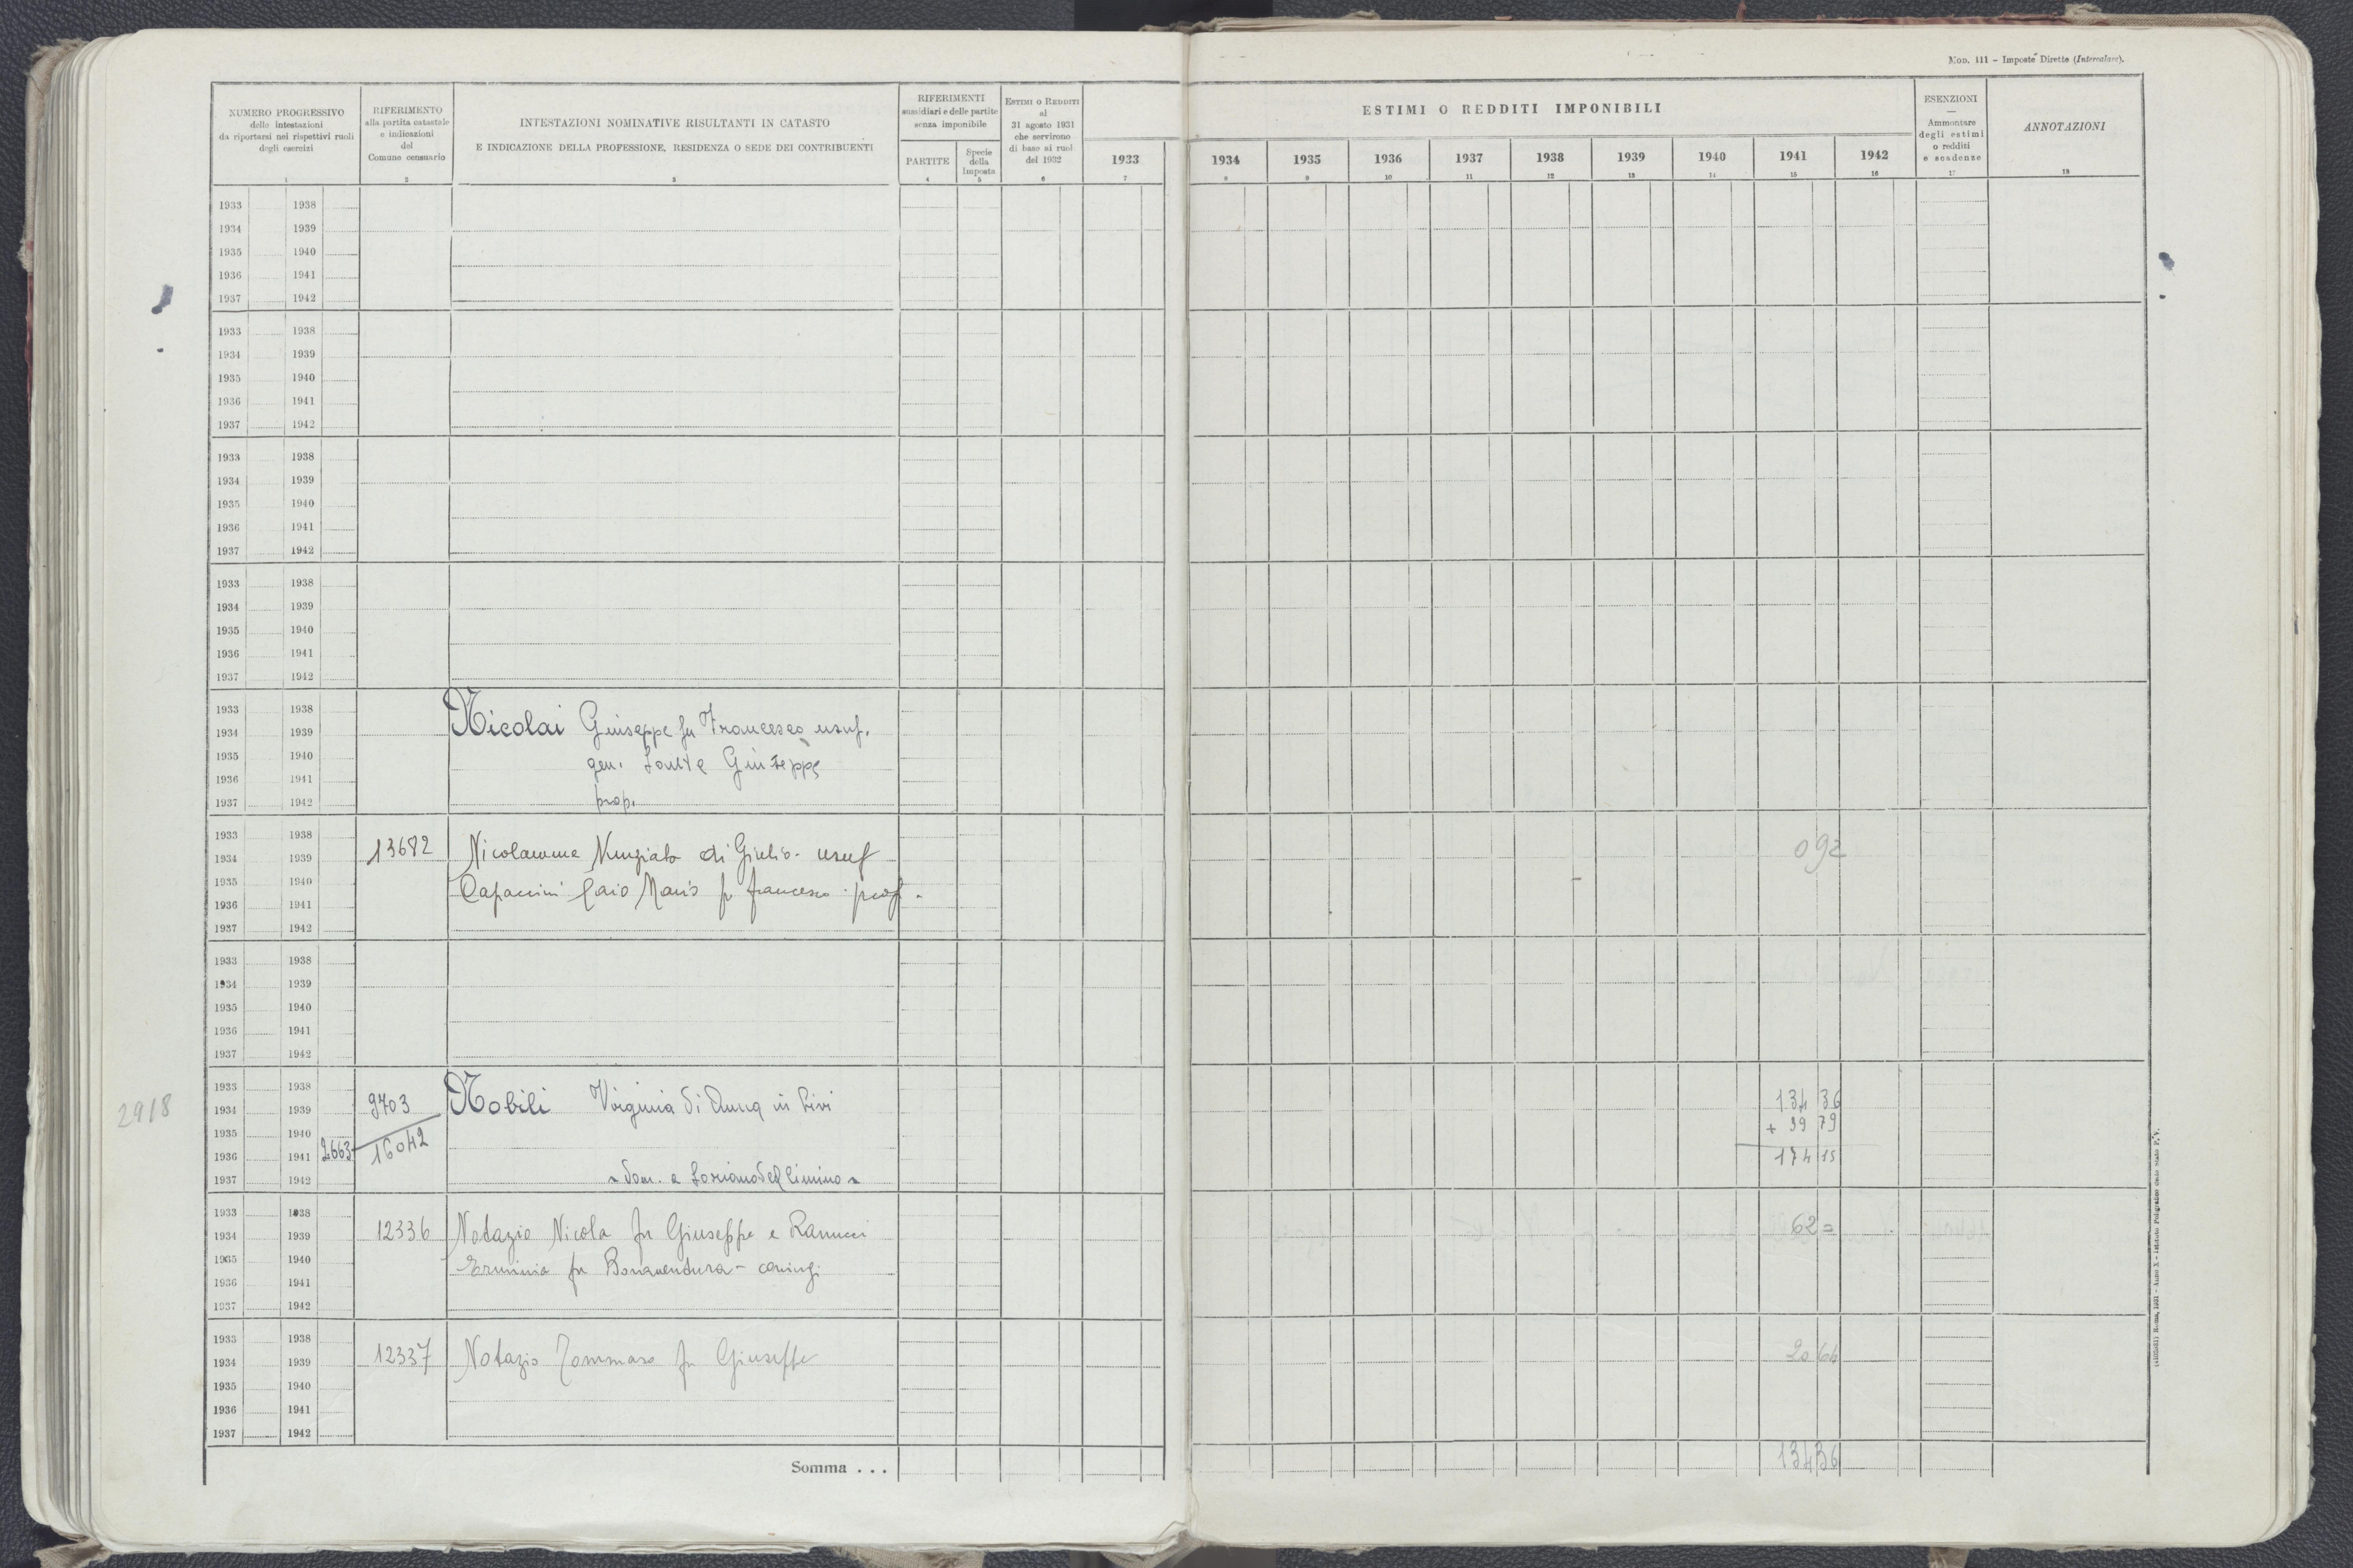 Mod. 111 - Imposte Dirette (Intercalare).
NUMERO PROGRESSIVO
delle intestazioni
da riportarsi nei rispettivi ruoli
degli esercizi
1
RIFERIMENTO
alla partita catastale
e indicazioni
del
Comune censuario
2
INTESTAZIONI NOMINATIVE RISULTANTI IN CATASTO
E INDICAZIONE DELLA PROFESSIONE, RESIDENZA O SEDE DEI CONTRIBUENTI
3
RIFERIMENTI
sussidiari e delle partite
senza imponibile
PARTITE
4
Specie
della
Imposta
5
ESTIMI O REDDITI
al
31 agosto 1931
che servirono
di base ai ruoli
del 1932
6
ESTIMI O REDDITI IMPONIBILI
1933 1934 1935 1936 1937 1938 1939 1940 1941 1942
7 8 9 10 11 12 13 14 15 16
ESENZIONI
—
Ammontare
degli estimi
o redditi
e scadenze
17
ANNOTAZIONI
18
1933 1938
1934 1939
1935 1940
1936 1941
1937 1942
1933 1938
1934 1939
1935 1940
1936 1941
1937 1942
1933 1938
1934 1939
1935 1940
1936 1941
1937 1942
1933 1938
1934 1939
1935 1940
1936 1941
1937 1942
1933 1938
1934 1939 Nicolai Giuseppe fu Francesco usuf.
1935 1940 gen. Giuseppe
1936 1941
1937 1942 prop.
1933 1938
1934 1939 13682 Nunziato di Giulio - usuf 0 92
1935 1940
1936 1941 Capaccini Caio Mario fu Francesco - prop.
1937 1942
1933 1938
1934 1939
1935 1940
1936 1941
1937 1942
1933 1938
2918 1934 1939 9703 Nobili Virginia di in Livi 134 36
1935 1940 + 39 79
1936 1941 2663 16042 174 15
1937 1942 - dom. a Soriano del Cimino -
1933 1938
1934 1939 12336 Notazio Nicola fu Giuseppe e Ranucci 62 =
1935 1940 Erminia fu Bonaventura - coniugi
1936 1941
1937 1942
1933 1938
1934 1939 12337 Notazio Tommaso fu Giuseppe 20 64
1935 1940
1936 1941
1937 1942
Somma . . . 134 36